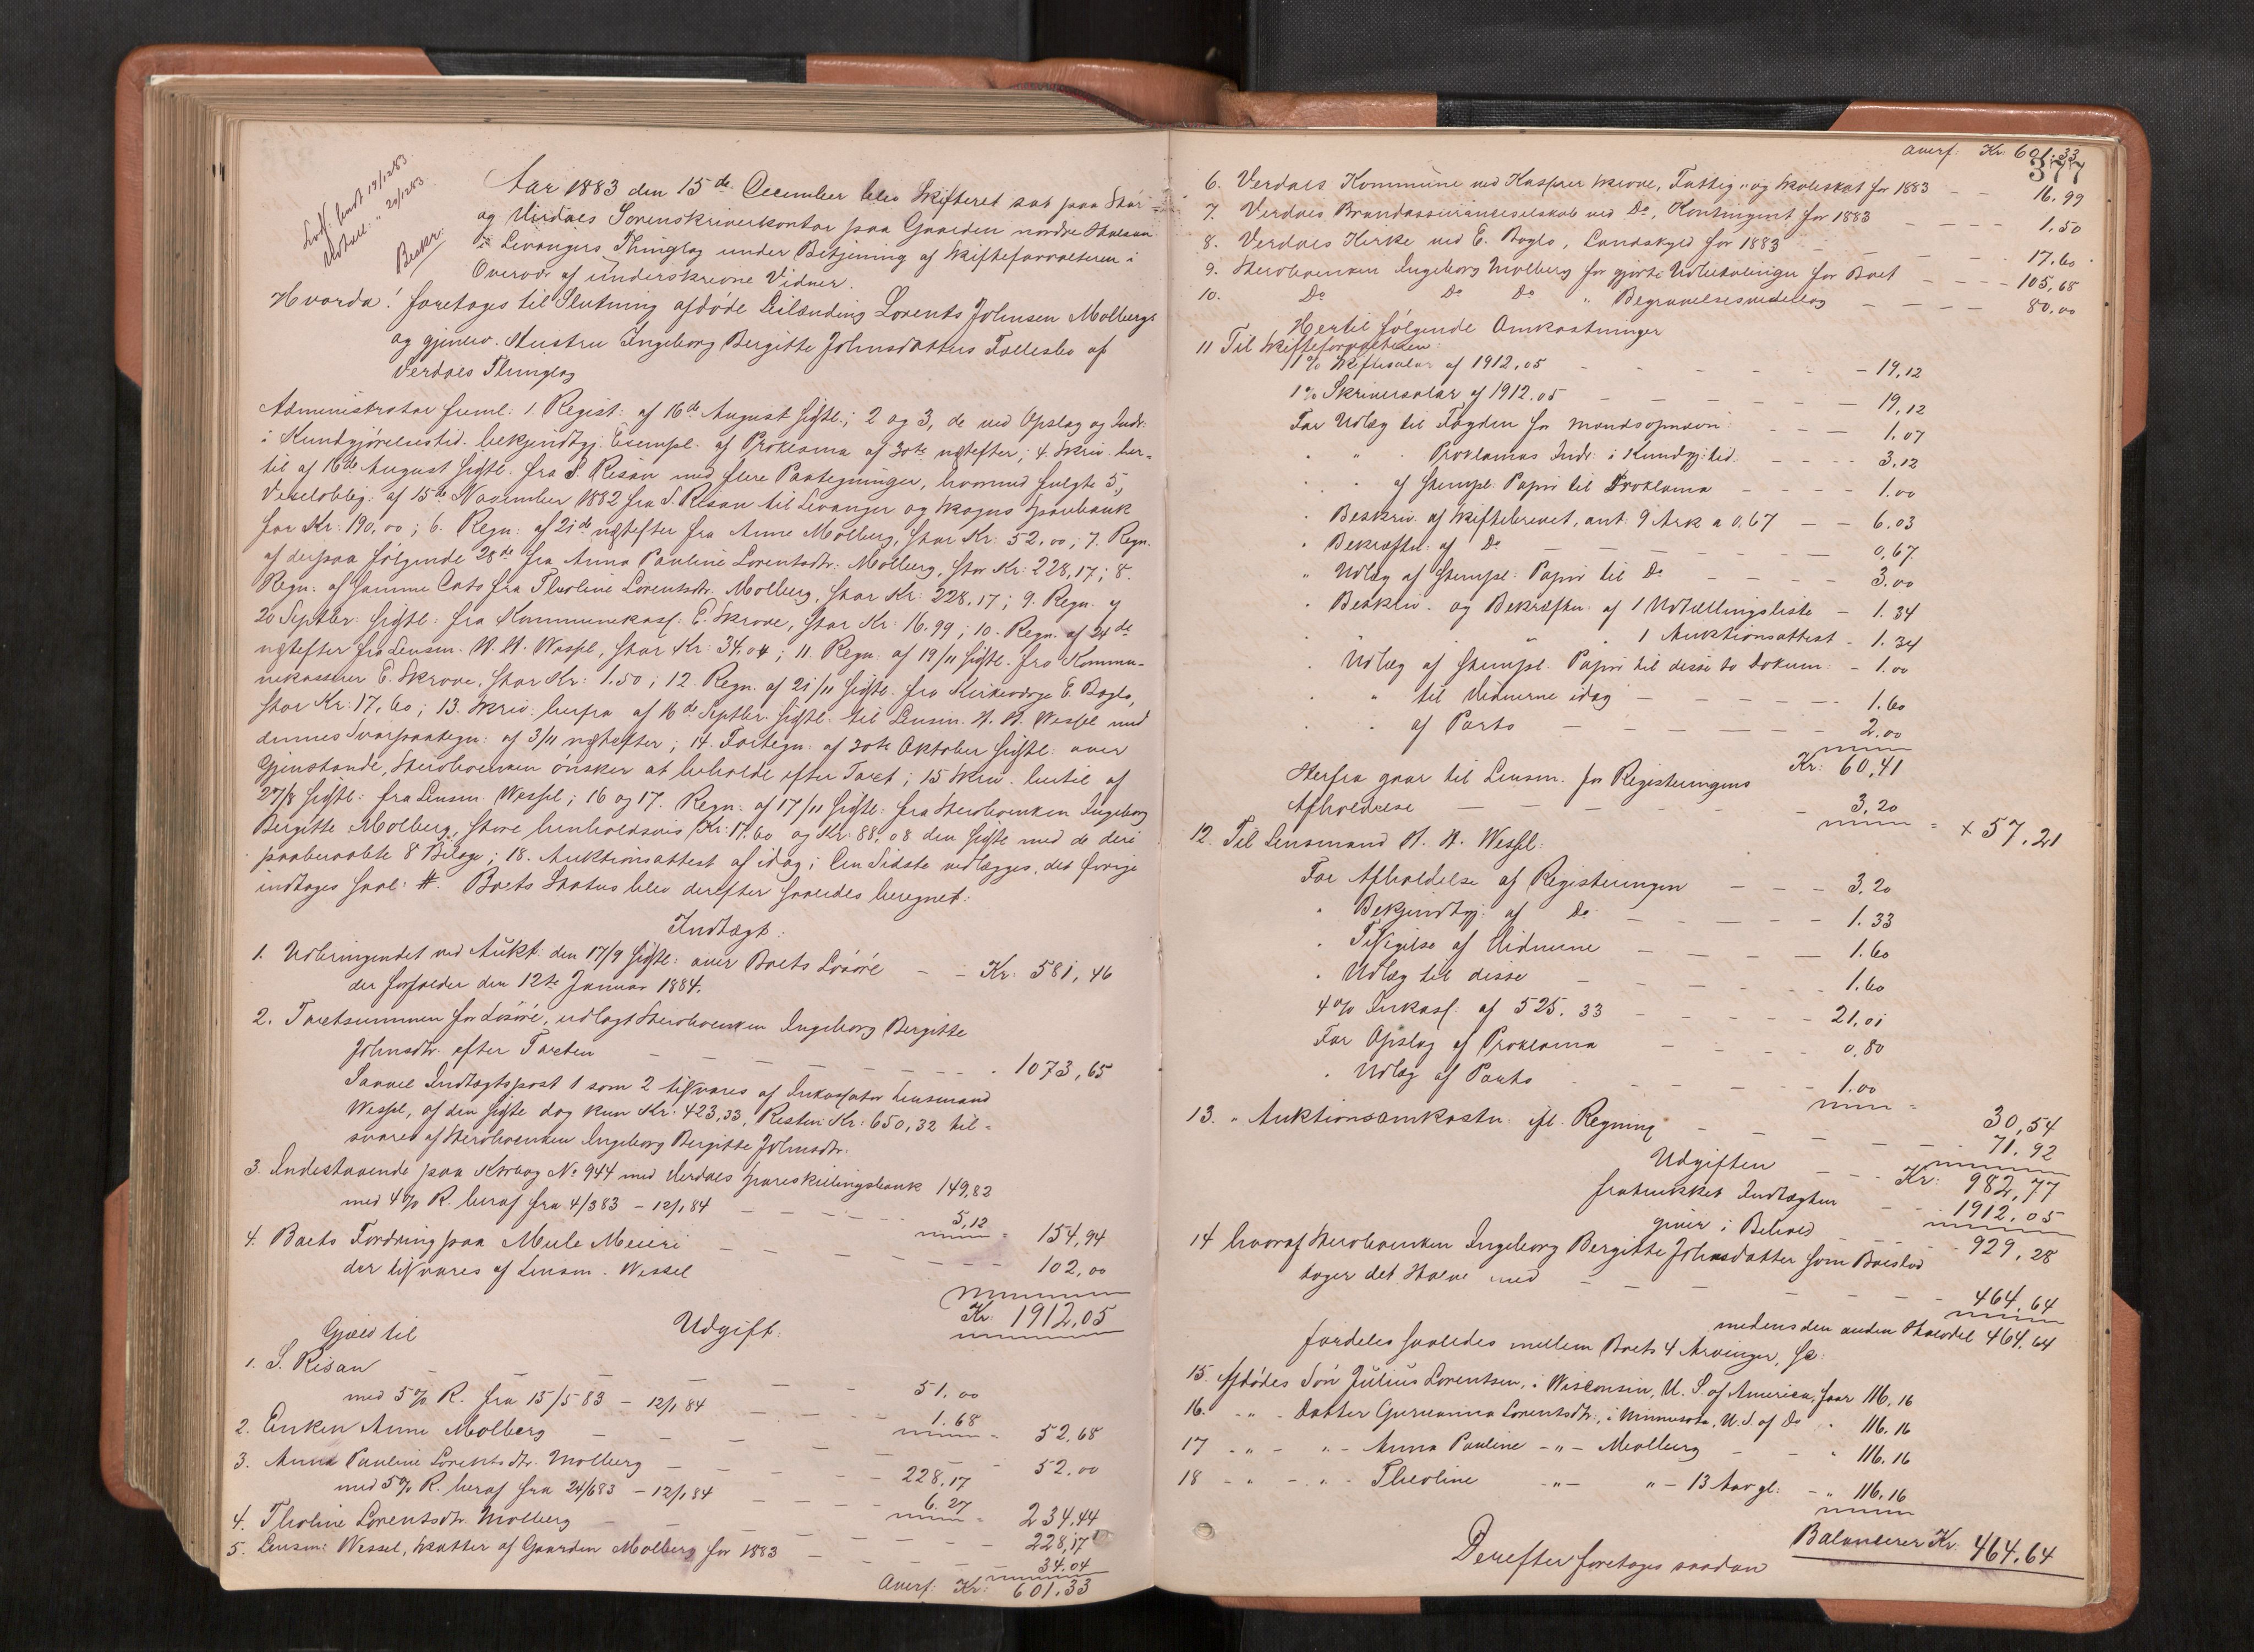 Aar 1883 den 15de December blev Skifteret sat paa Stør-
og Værdals Sorenskriverkontor paa Gaarden nordre Halsan
i Levangers Thinglag under Betjening af Skifteforvalteren i
Overvær af underskrevne Vidner.
Hvorda! foretoges til Slutning afdøde Leilænding Lorents Johnsen Molbergs
og gjenlev. Hustru Ingeborg Bergitte Johnsdatters Fællesbo af
Verdals Thinglag
Administrator freml: 1. Regist: af 16de August sidstl.; 2 og 3, de ved Opslag og Indr:
i Kundgjørelsestid. bekjendtgj: Exempl. af Proklama af 30te næstefter; 4. Skriv. her-
til af 16de August sidstl. fra S. Risan med flere Paategninger, hvormed fulgte 5,
Vexeloblig: af 15de November 1882 fra S. Risan til Levanger og Skogns Sparebank
for Kr: 190,00; 6. Regn. af 21de næstefter fra Anne Molberg, stor Kr: 52,00; 7. Regn.
af derpaa følgende 28de fra Anna Pauline Lorentsdtr: Molberg, stor Kr: 228,17; 8.
Regn. af samme Dato fra Theoline Lorentsdtr. Molberg, stor Kr: 228,17; 9. Regn. af
20 Septbr: sidstl: fra Kommunekass. E. Skrove, stor Kr: 16,99; 10. Regn. af 24de
næstefter fra Lensm. W. H. Wessel, stor Kr: 34,04; 11. Regn. af 19/11 sidstl. fra Kommu-
nekasserer E. Skrove, stor Kr: 1.50; 12. Regn. af 21/11 sidstl. fra Kirkeværge E. Baglo,
stor Kr: 17,60; 13. Skriv. herfra af 16de Septbr. sidstl. til Lensm. H. H. Wessel med
dennes Svarpaategn: af 3/11 næstefter; 14. Fortegn. af 30te Oktober sidstl: over
Gjenstande, Sterboenken ønsker at beholde efter Taxt; 15 Skriv. hertil af
27/8 sidstl: fra Lensm Wessel; 16 og 17. Regn: af 17/11 sidstl: fra Sterboenken Ingeborg
Bergitte Molberg, store henholdsvis Kr: 17.60 og Kr: 88,08 den sidste med de deri
paaberaabte 8 Bilage; 18. Auktionsattest af idag; Den Sidste vedlægges, det øvrige
indtages saal: #. Boets Status blev derefter saaledes beregnet:
Indtægt:
1. Udbringendet ved Aukt: den 17/9 sidstl: over Boets Løsøre - - Kr: 581,46
der forfalder den 12te Januar 1884.
2. Taxtsummen for Løsøre, udlagt Sterboenken Ingeborg Bergitte
Johnsdtr. efter Taxten - - - - - 1073,65
Saavel Indtægtspost 1 som 2 tilsvares af Inkassator Lensmand
Wessel, af den sidste dog kun Kr: 423,33, Resten Kr: 650,32 til-
svares af Sterboenken Ingeborg Bergitte Johnsdtr.
3. Indestaaende paa Kvbog No 944 med Verdals Spareskillingsbank 149,82
med 4% R. heraf fra 4/3 83 - 12/1 84 - - - 5,12 = 154,94
4. Boets Fordring paa Mule Meieri - - - - 102,00
der tilsvares af Lensm. Wessel
Kr: 1912,05
Gjæld til Udgift:
1. S. Risan - - - - 51.00
med 5% R. fra 15/5 83 - 12/1 84 - - - 1.68 = 52,68
2. Enken Anne Molberg - - - - 52,00
3. Anna Pauline Lorentsdtr. Molberg - - 228,17
med 5% R. heraf fra 24/6 83 - 12/1 84 - - - 6.27 = 234,44
4. Theoline Lorentsdtr. Molberg - - - - 228,17
5. Lensm: Wessel, Skatter af Gaarden Molberg for 1883 - - - 34.04
Overf: Kr: 601.33
Overf. Kr. 601.33
377
6. Verdals Kommune ved Kasserer Skrove, Fattig- og Skoleskat for 1883 - - 16.99
7. Verdals Brandassuranceselskab ved Do, Kontingent for 1883 - - - 1,50
8. Verdals Kirke ved E. Baglo, Landskyld for 1883 - - - 17.60
9. Sterboenken Ingeborg Molberg for gjorte Udbetalinger for Boet - - - 105,68
10. Do Do Do " Begravelsesvederlag - - - 80,00
Hertil følgende Omkostninger
11 Til Skifteforvalteren:
1% Skiftesalær af 1912,05 - - - - 19,12
1% Skriversalær af 1912.05 - - - - 19,12
For Udlæg til Fogden for Mandsopnævn: - - - 1.07
" " Proklamas Indr: i Kundgj: tid. - - - 3,12
" " af stempl: Papir til Proklama - - - 1.00
" Beskriv. af Skiftebrevet, ant: 9 Ark a 0,67 - - 6.03
" Bekræftn: af Do - - - - 0,67
" Udlæg af stempl: Papir til Do - - - 3.00
" Beskriv. og Bekræftn. af 1 Udtællingsliste - 1.34
" " " 1 Auktionsattest - 1.34
" Udlæg af stempl. Papir til disse to Dokum: - 1.00
" " til Vidnerne idag - - - - 1.60
" " af Porto - - - - 2.00
Kr: 60,41
Herfra gaar til Lensm. for Registeringens
Afholdelse - - - - 3.20 = x 57.21
12. Til Lensmand H. H. Wessel:
For Afholdelse af Registeringen - - - 3.20
" Bekjendtgj: af Do - - - - 1.33
" Tilsigelse af Vidnerne - - - - 1.60
" Udlæg til disse - - - - 1.60
4% Inkass: af 525.33 - - - - 21,01
For Opslag af Proklama - - - - 0,80
" Udlæg af Porto - - - - 1.00 = 30,54
13. " Auktionsomkostn: ifl. Regning - - - - 71.92
Udgiften - - - Kr: 982,77
fratrukket Indtægten - - 1912.05
giver i Behold - - - 929.28
14 hvoraf Sterboenken Ingeborg Bergitte Johnsdatter som Boeslod
tager det Halve med - - - - 464.64
medens den anden Halvdel 464.64
fordeles saaledes mellem Boets 4 Arvinger, ss:
15. Afdødes Søn Julius Lorentsen, i Wisconsin, U. S. of America, faar 116,16
16. - " - Datter Gurianna Lorentsdtr:, i Minnesota, U. S. of Do " 116.16
17 - " - " - Anna Pauline - " - Molberg - - " 116.16
18 - " - " - Theoline - " - " - 13 Aar gl: - " 116.16
Balancerer Kr: 464.64
Derefter foretoges saadan